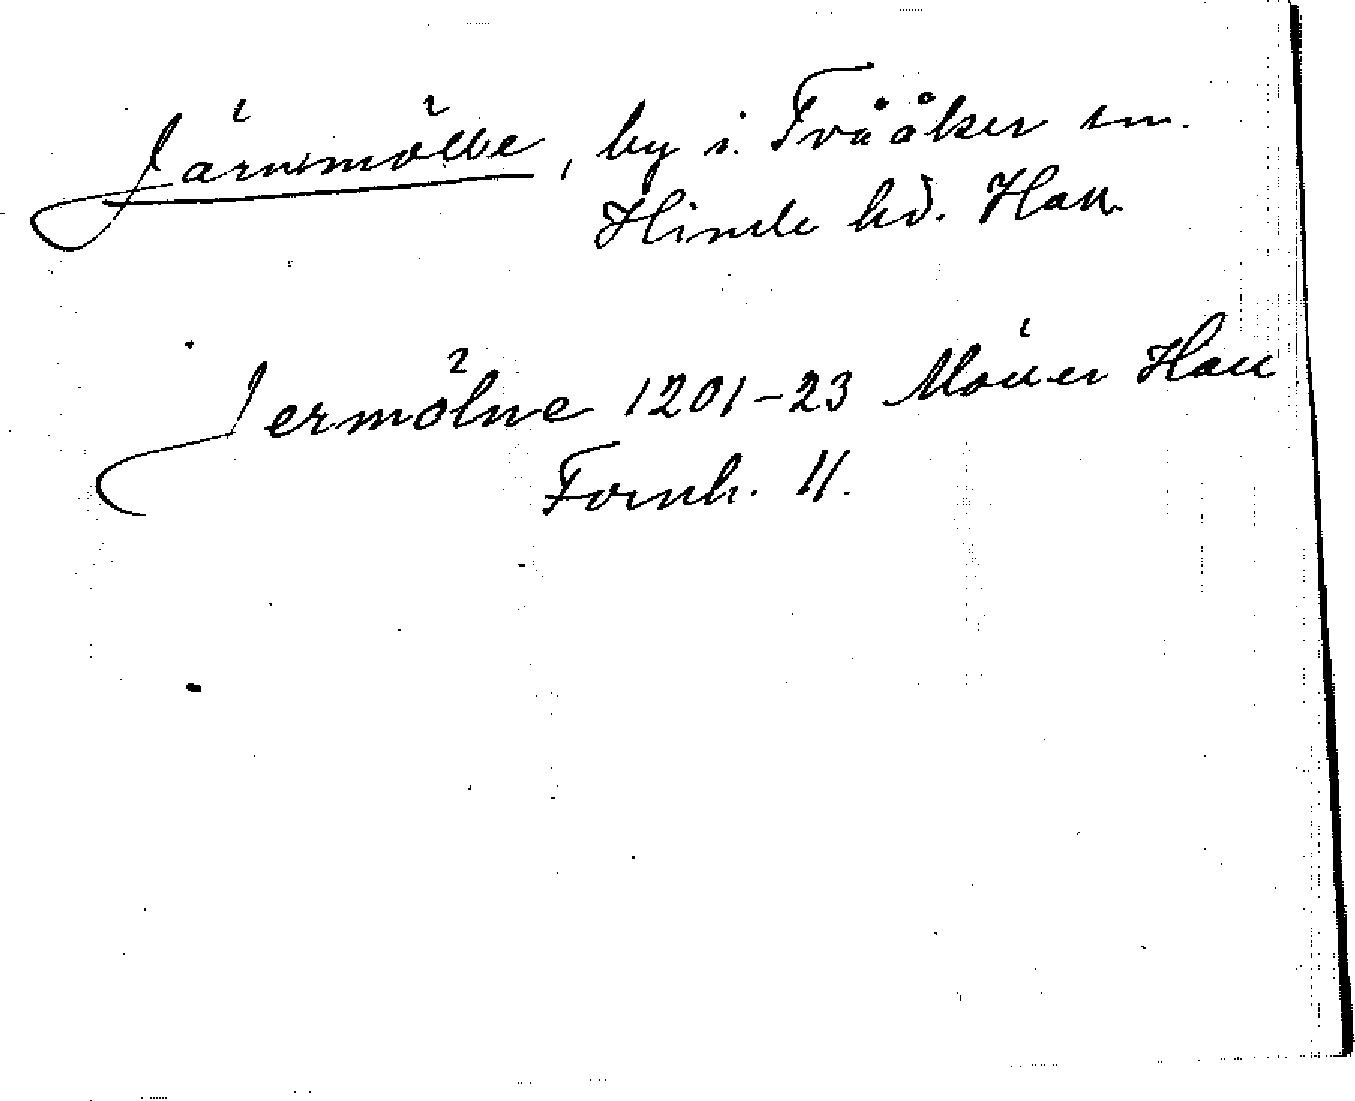 Järnmölle, by i Tvååker sn.
Himle hd. Hall.
Jermölne 1201-23 Möller Hall
Fornh. II.